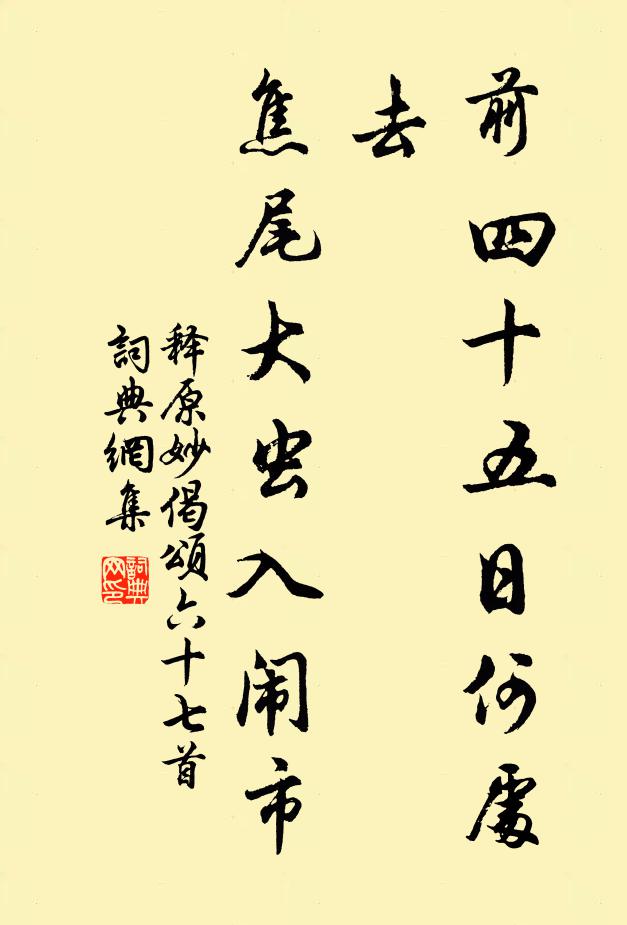 前四十五日何處
去
焦尾大虫入闹市
释原妙偈頌六十七首
詞典網集
詞典
网印